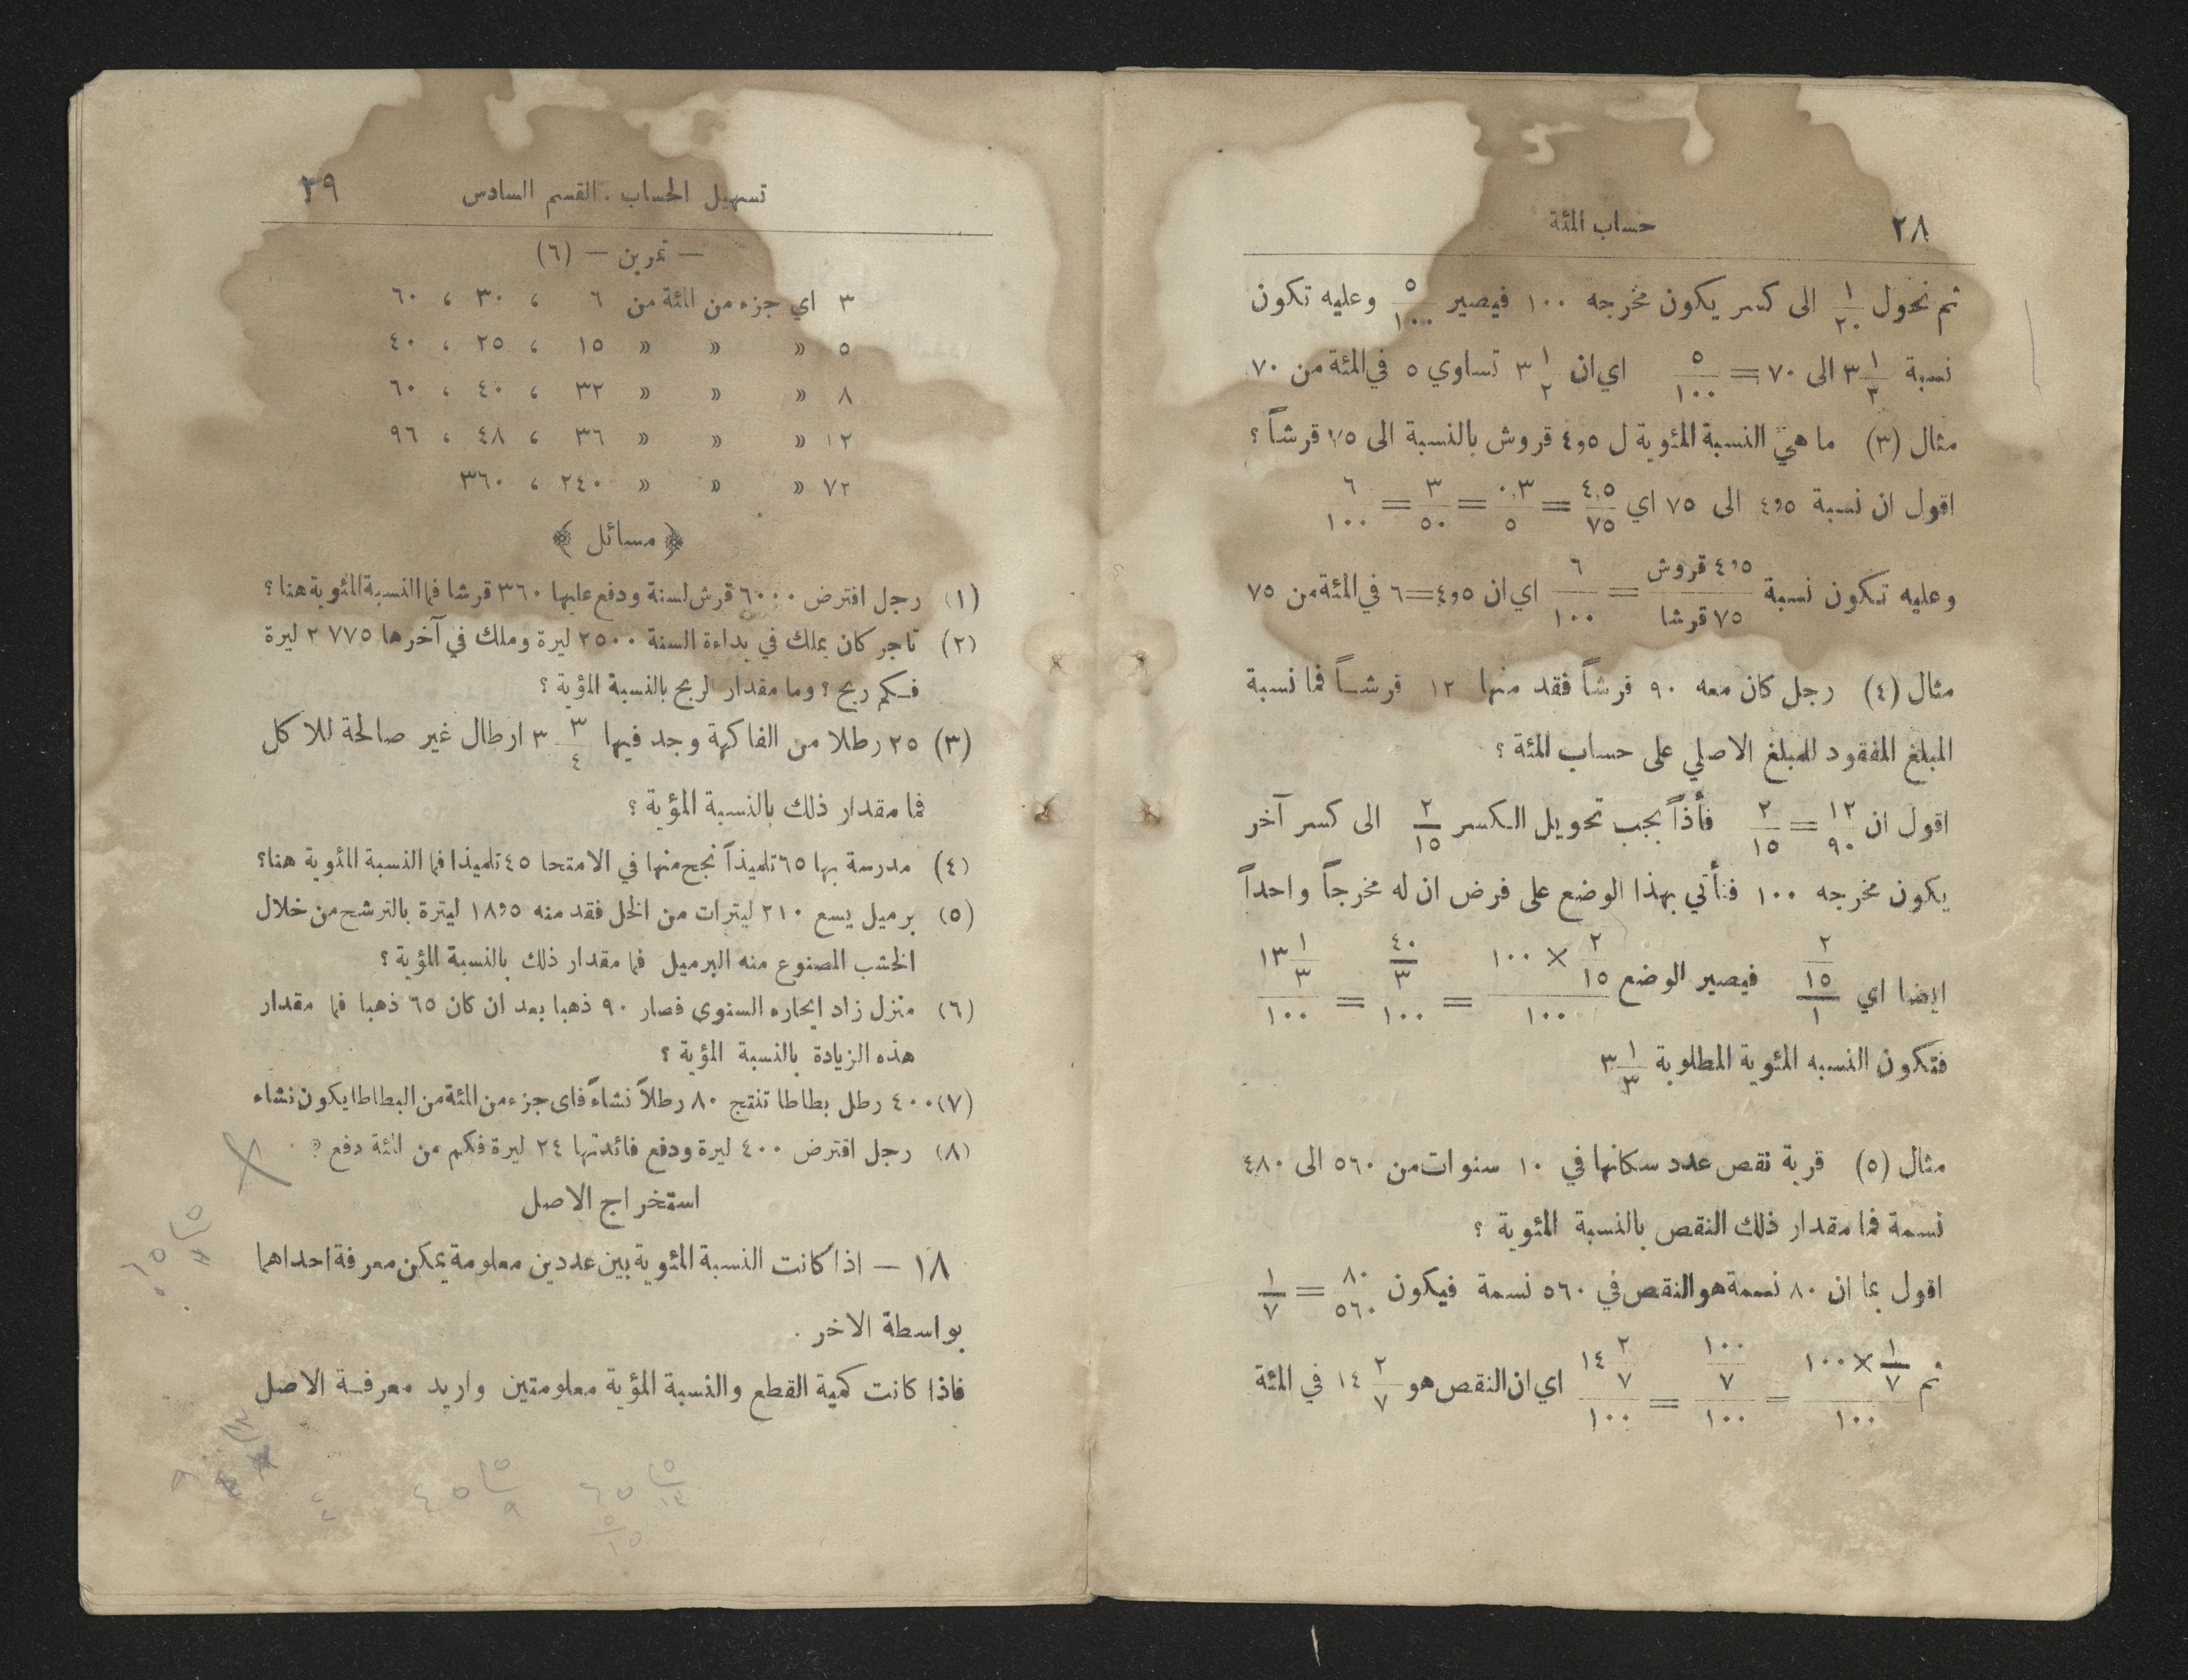 ٢٨ حساب المئة
ثم نحول ١/٢٠ الى كسر يكون مخرجه ١٠٠ فيصير ٥/١٠٠ وعليه تكون
نسبة ٣ ١/٢ الى ٧٠ = ٥/١٠٠ اي ان ٣ ١/٢ تساوي ٥ في المئة من ٧٠
مثال (٣) ما هي النسبة المئوية ل ٤٫٥ قروش بالنسبة الى ٧٥ قرشاً ؟
اقول ان نسبة ٤٫٥ الى ٧٥ اي ٤٫٥/٧٥ = ٠٫٣/٥ = ٣/٥٠ = ٦/١٠٠
وعليه تكون نسبة ٤٫٥ قروش/٧٥ قرشا = ٦/١٠٠ اي ان ٤٫٥=٦ في المئة من ٧٥
مثال (٤) رجل كان معه ٩٠ قرشاً فقد منها ١٢ قرشاً فما نسبة
المبلغ المفقود للمبلغ الاصلي على حساب المئة ؟
اقول ان ١٢/٩٠ = ٢/١٥ فأذاً يجب تحويل الكسر ٢/١٥ الى كسر آخر
يكون مخرجه ١٠٠ فنأتي بهذا الوضع على فرض ان له مخرجاً واحداً
ايضا اي ٢/١٥/١ فيصير الوضع ٢/١٥ × ١٠٠/١٠٠ = ٤٠/٣/١٠٠ = ١٣ ١/٣/١٠٠
فتكون النسبه المئوية المطلوبة ٣ ١/٣
مثال (٥) قرية نقص عدد سكانها في ١٠ سنوات من ٥٦٠ الى ٤٨٠
نسمة فما مقدار ذلك النقص بالنسبة المئوية ؟
اقول بما ان ٨٠ نسمة هو النقص في ٥٦٠ نسمة فيكون ٨٠/٥٦٠ = ١/٧
ثم ١/٧ × ١٠٠/١٠٠ = ١٠٠/٧/١٠٠ = ١٤ ٢/٧/١٠٠ اي ان النقص هو ١٤ ٢/٧ في المئة
تسهيل الحساب . القسم السادس ٢٩
— تمرين — (٦)
٣ اي جزء من المئة من ٦ ، ٣٠ ، ٦٠
٥ » » » ١٥ ، ٢٥ ، ٤٠
٨ » » » ٣٢ ، ٤٠ ، ٦٠
١٢ » » » ٣٦ ، ٤٨ ، ٩٦
٧٢ » » » ٢٤٠ ، ٣٦٠
﴿ مسائل ﴾
(١) رجل اقترض ٦٠٠٠ قرش لسنة ودفع عليها ٣٦٠ قرشا فما النسبة المئوية هنا ؟
(٢) تاجر كان يملك في بداءة السنة ٢٥٠٠ ليرة وملك في آخرها ٢٧٧٥ ليرة
فكم ربح ؟ وما مقدار الربح بالنسبة المؤية ؟
(٣) ٢٥ رطلا من الفاكهة وجد فيها ٣ ٣/٤ ارطال غير صالحة للاكل
فما مقدار ذلك بالنسبة المؤية ؟
(٤) مدرسة بها ٦٥ تلميذاً نجح منها في الامتحا ٤٥ تلميذا فما النسبة المئوية هنا ؟
(٥) برميل يسع ٢١٠ ليترات من الخل فقد منه ١٨٫٥ ليترة بالترشح من خلال
الخشب المصنوع منه البرميل فما مقدار ذلك بالنسبة المؤية ؟
(٦) منزل زاد ايجاره السنوى فصار ٩٠ ذهبا بعد ان كان ٦٥ ذهبا فما مقدار
هذه الزيادة بالنسبة المؤية ؟
(٧) ٤٠٠ رطل بطاطا تنتج ٨٠ رطلاً نشاءً فاى جزء من المئة من البطاطا يكون نشاء
(٨) رجل اقترض ٤٠٠ ليرة ودفع فائدتها ٢٤ ليرة فكم من المئة دفع ؟
استخراج الاصل
١٨ — اذا كانت النسبة المئوية بين عددين معلومة يمكن معرفة احداهما
بواسطة الاخر .
فاذا كانت كمية القطع والنسبة المؤية معلومتين واريد معرفة الاصل